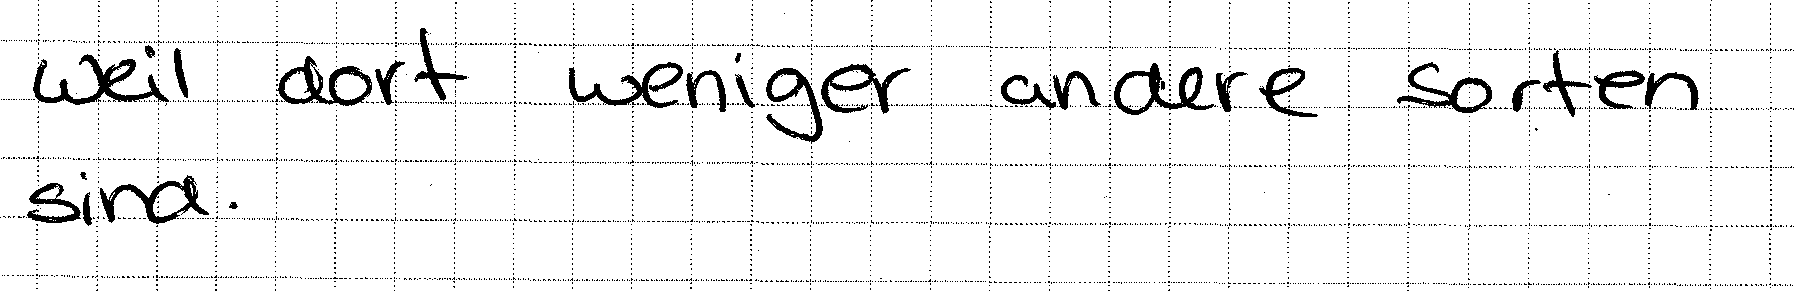 weil dort weniger andere sorten
sind.